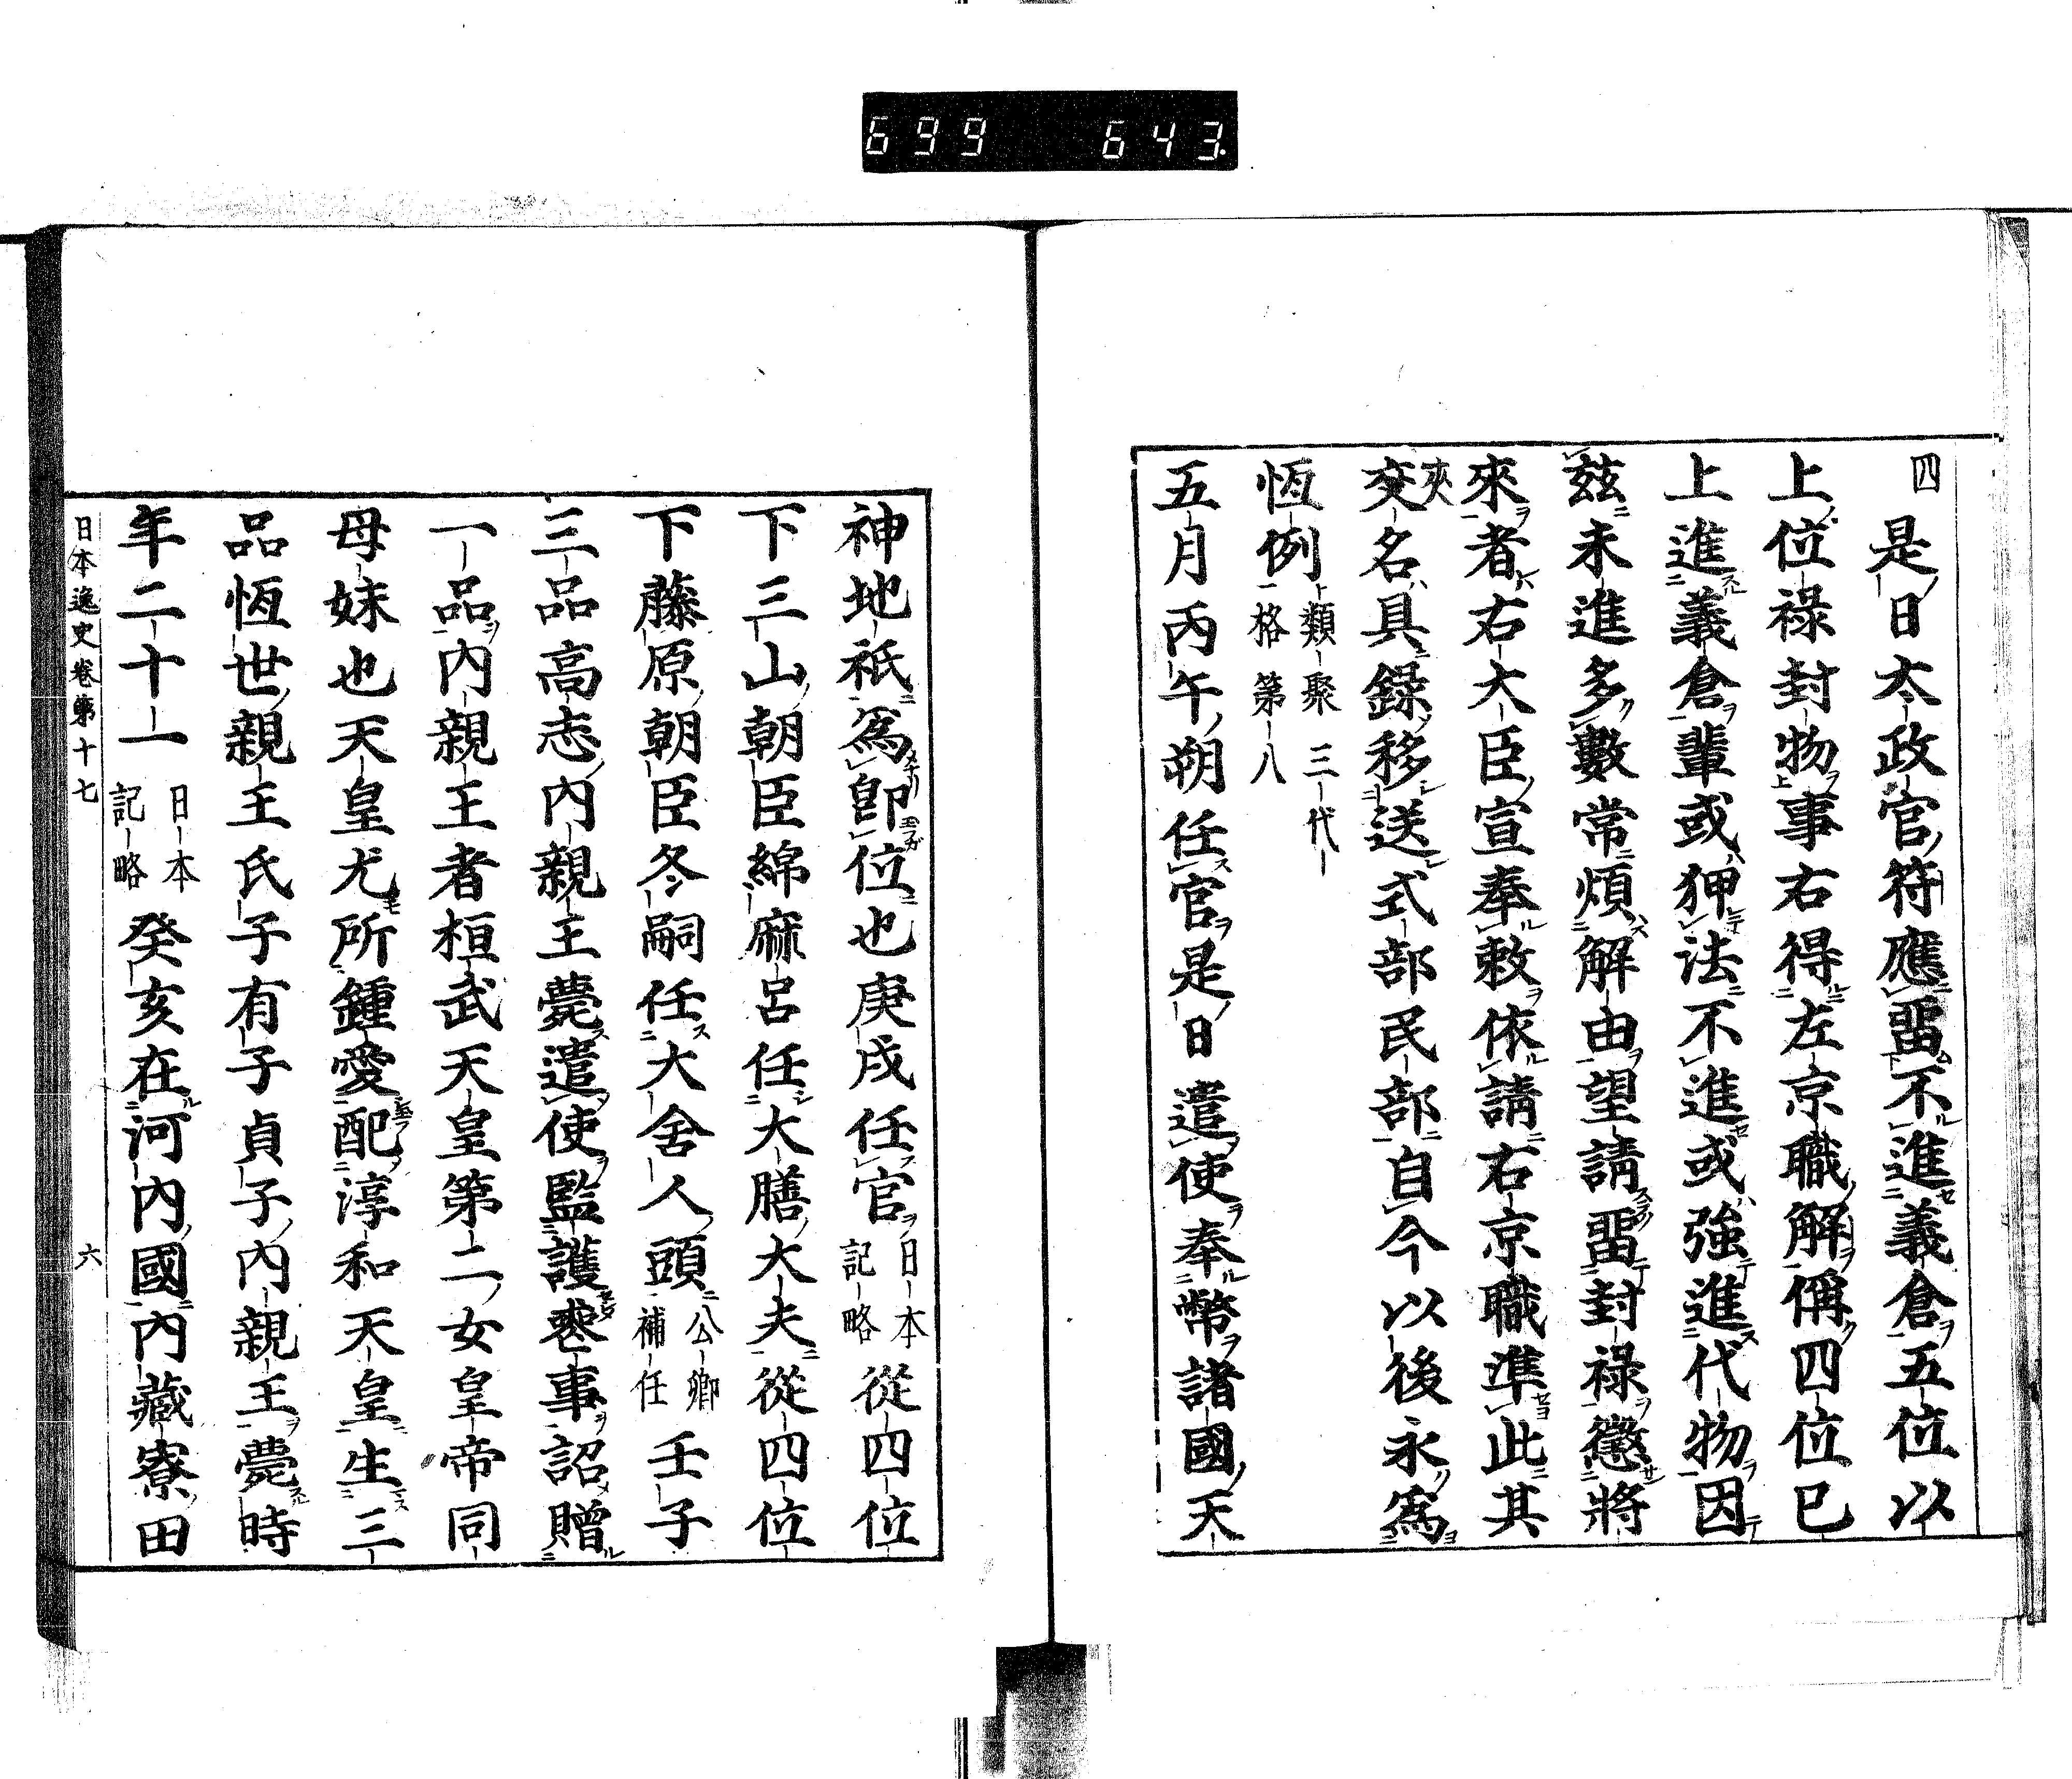 699 643
四
是日太政官符應畱不進義倉五位以
上位祿封物事右得左京職解偁四位已
上進義倉輩或狎法不進或強進代物因
茲未進多數常煩解由望請畱封祿懲將
來者右大臣宣奉敕依請右京職準此其
夾
交名具錄移送式部民部自今以後永爲
恆例
類聚三代
格第八
五月丙午朔任官是日遣使奉幣諸國天
神地祇爲卽位也庚戌任官
日本
記略
從四位
下三山朝臣綿麻呂任大膳大夫從四位
下藤原朝臣冬嗣任大舍人頭
公卿
補任
壬子
三品高志內親王薨遣使監護喪事詔贈
一品內親王者桓武天皇第二女皇帝同
母妹也天皇尤所鍾愛配淳和天皇生三
品恆世親王氏子有子貞子內親王薨時
年二十一
日本
記略
癸亥在河內國內藏寮田
日本逸史卷第十七
六